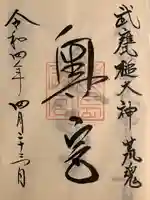 武甕槌大神荒魂
奥宮
令和四年四月二十三日